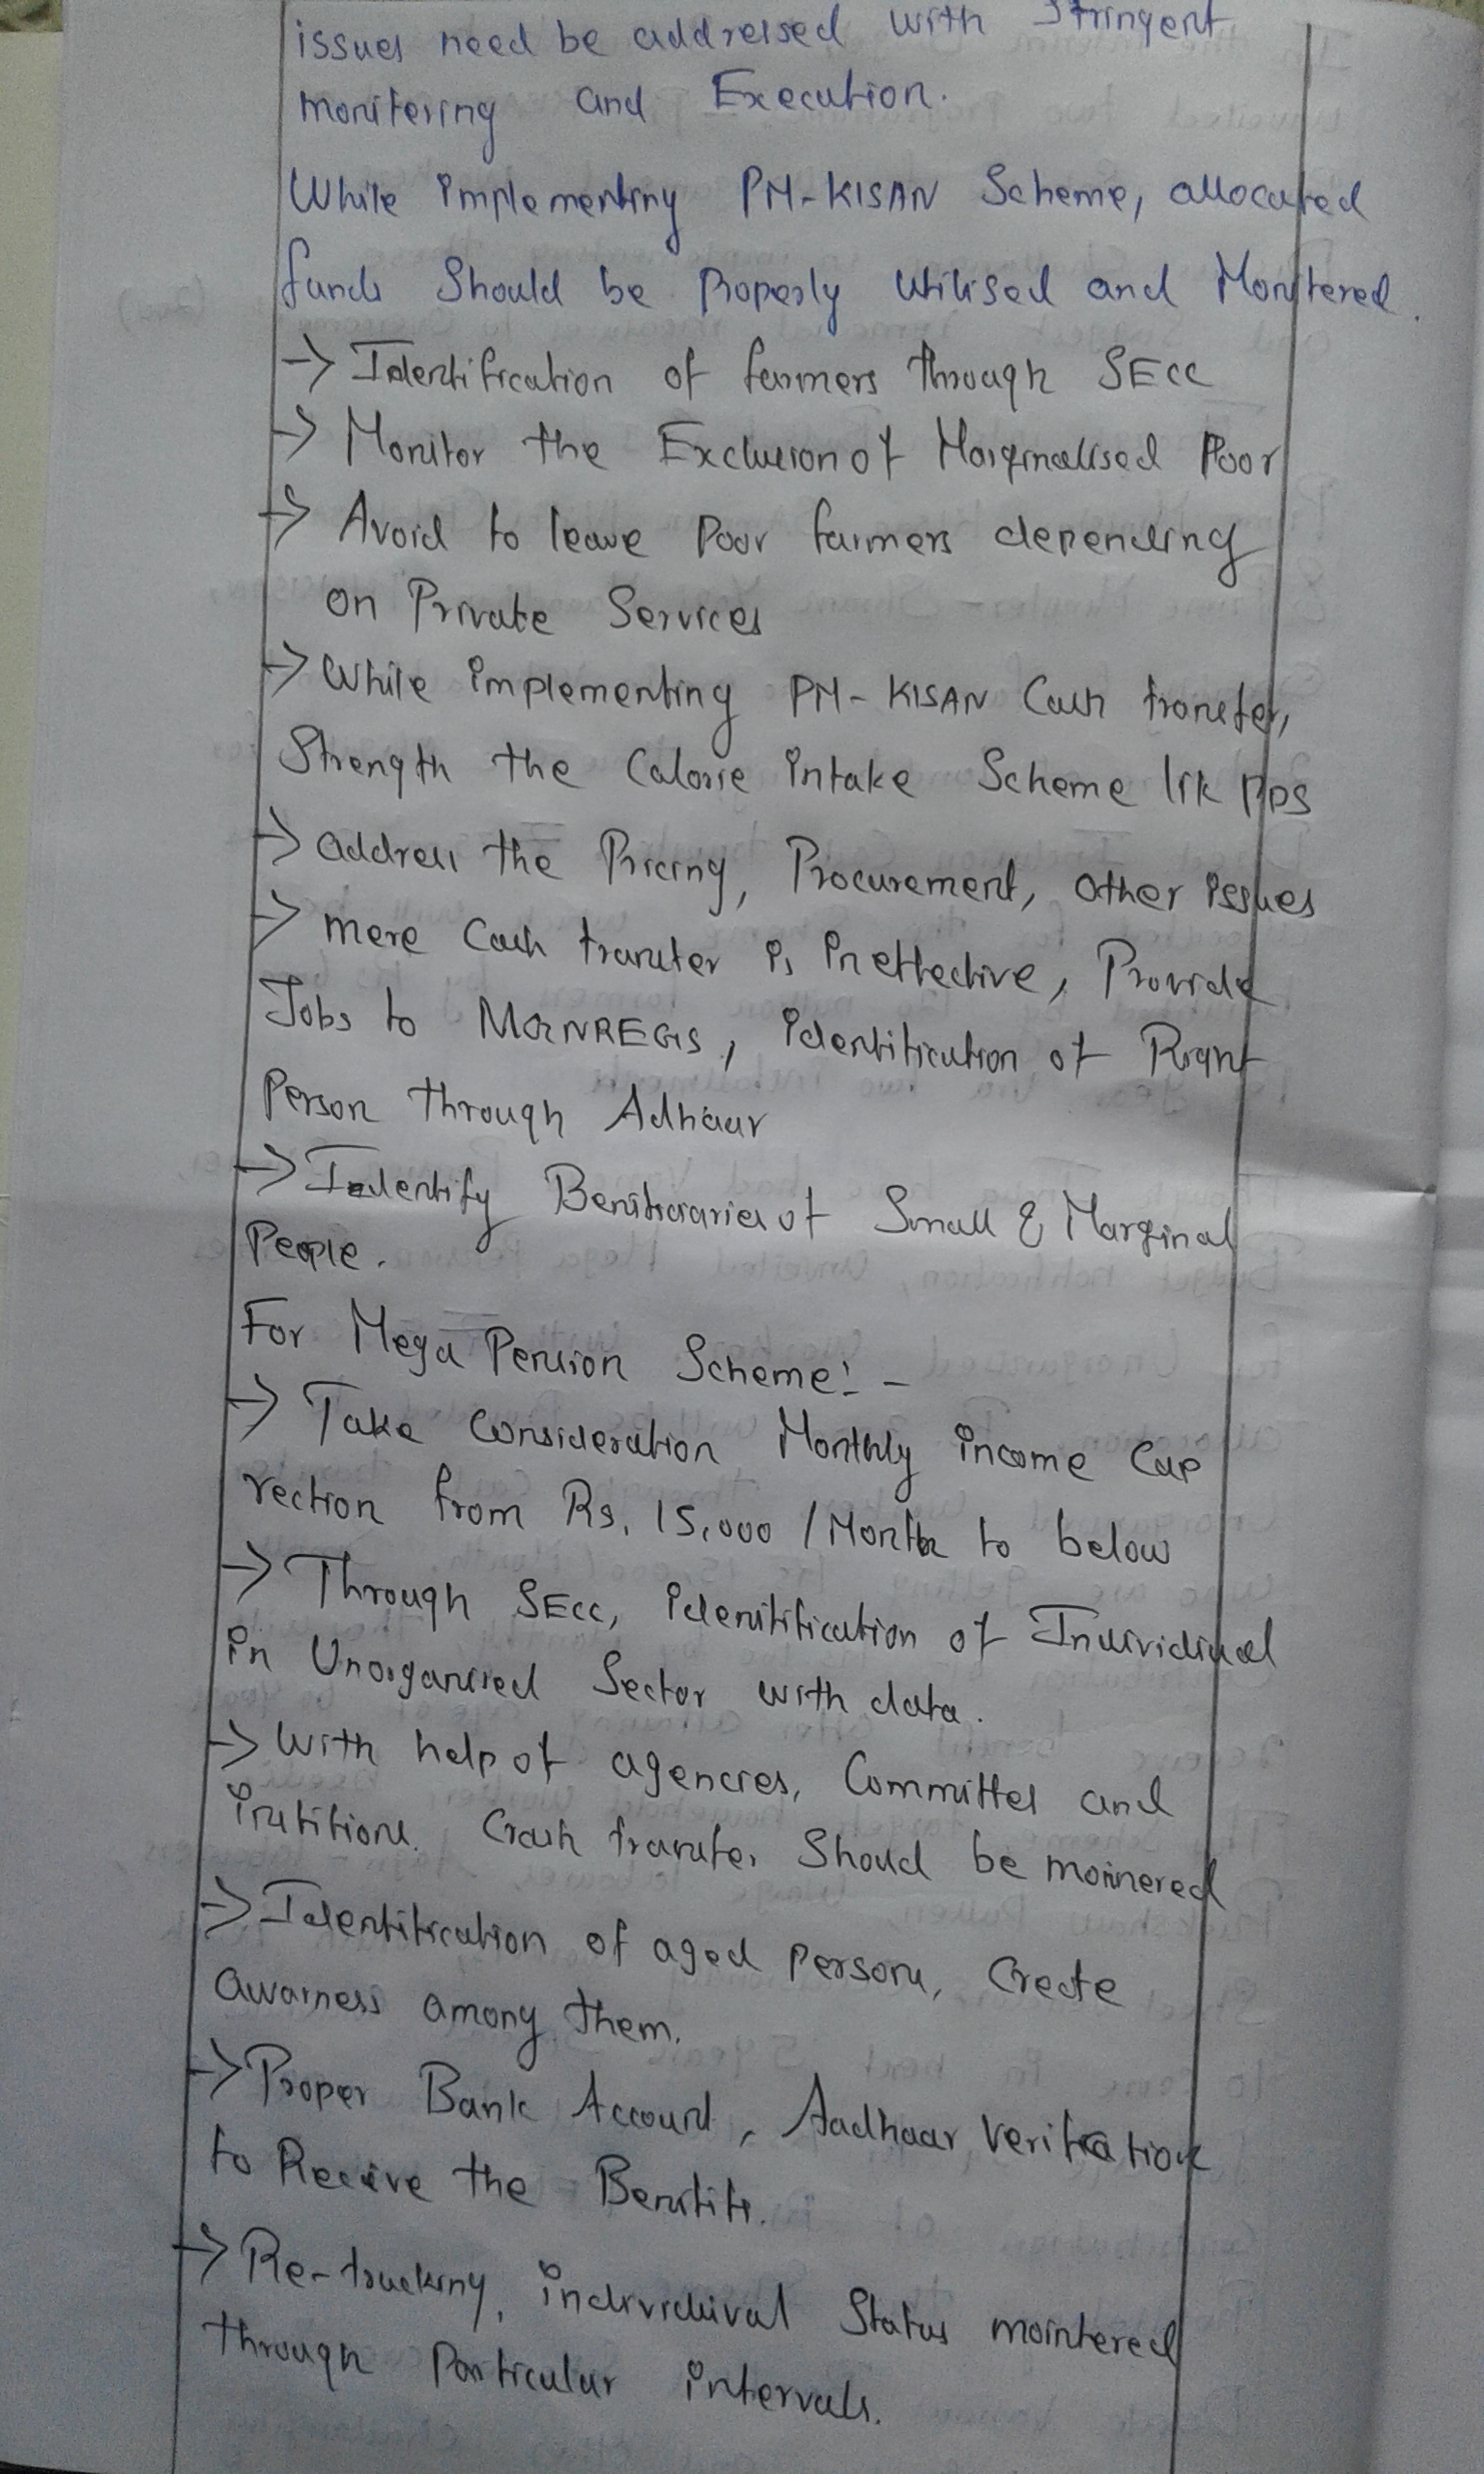 issues need be addressed with Stringent
monitering and Execution.
While implementing PM-KISAN Scheme, allocated
funds Should be Properly Utilised and Monitered.
→ Identification of farmers through SECC
→ Monitor the Exclusion of Marginalised Poor
→ Avoid to leave Poor farmers depending
on Private Services
→ While implementing PM-KISAN Cash transfer,
Strength the Calorie intake Scheme lik PDS
→ address the Pricing, Procurement, other issues
→ mere Cash transfer is ineffective, Provide
Jobs to MGNREGS, identification of Right
Person through Adhaar
→ Identify Benificiaries of Small & Marginal
People.
For Mega Pension Scheme: -
→ Take Consideration Monthly income Cap
rection from Rs. 15,000 / Month to below
→ Through SECC, idenitification of Individual
in Unorganised Sector with data.
→ With help of agencies, Committes and
Cash transfer Should be moinered
→ Identification of aged persons, Crecte
awarness among them.
→ Proper Bank Account, Aadhaar Verification
to Receive the Benifits.
→ Re-tracking, individuval Status mointered
through Particular intervals.